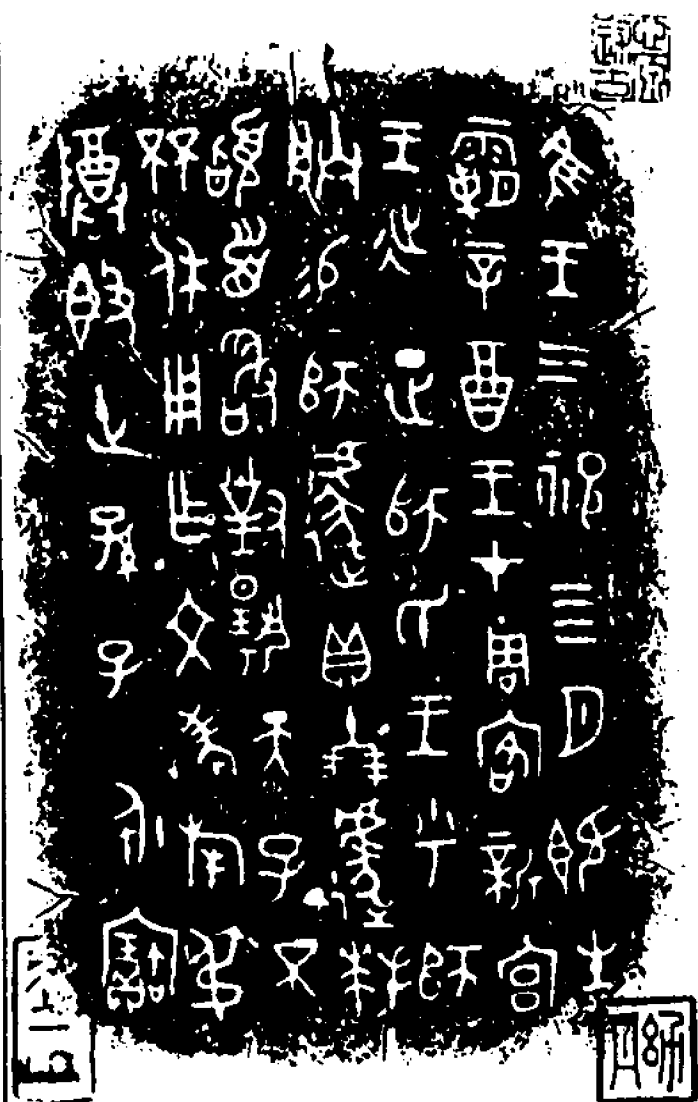 隹王三祀四月既生
霸辛酉王才周客新宮
王㢟正師氏王乎師
朕易師遽貝十朋遽拜
𩒨首敢對揚天子不
㔻休用乍文考旄弔
尊𣪘世孫子永寶